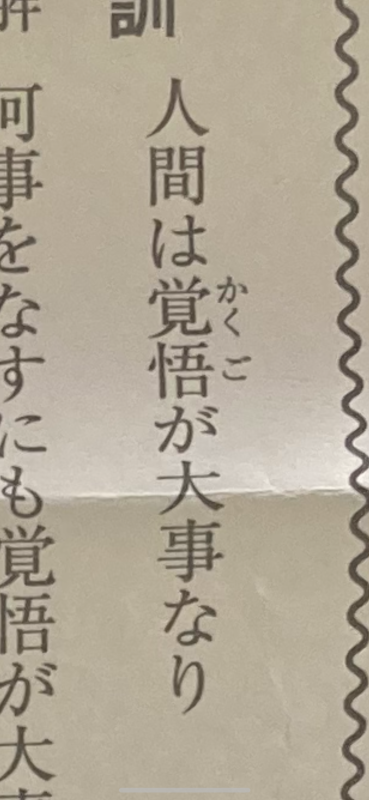 訓
人間は覚悟が大事なり
かくご
何事をなすにも覚悟が大事